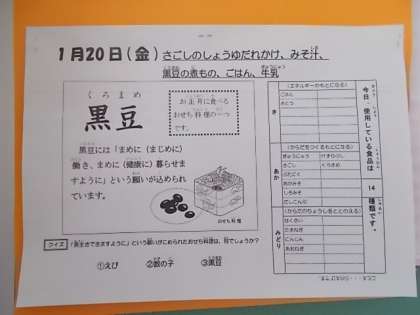 1月20日(金) さごしのしょうゆだれかけ、みそ汁、
黒豆の煮もの、ごはん、牛乳
くろまめ
黒豆
お正月に食べる
おせち料理の一つ
です。
黒豆には「まめに(まじめに)
働き、まめに(健康に)暮らせま
すように」という願いが込められ
ています。
おせち料理
クイズ 「長生きできますように」という願いがこめられたおせち料理は、何でしょうか?
①えび ②数の子 ③黒豆
今日、使用している食品は
14
種類です。
き
(エネルギーのもとになる)
ごはん
さとう
あか
(からだをつくるもとになる)
ぎゅうにゅう
さごし
くろまめ
みどり
(からだのちょうしをととのえる)
はくさい
たまねぎ
にんじん